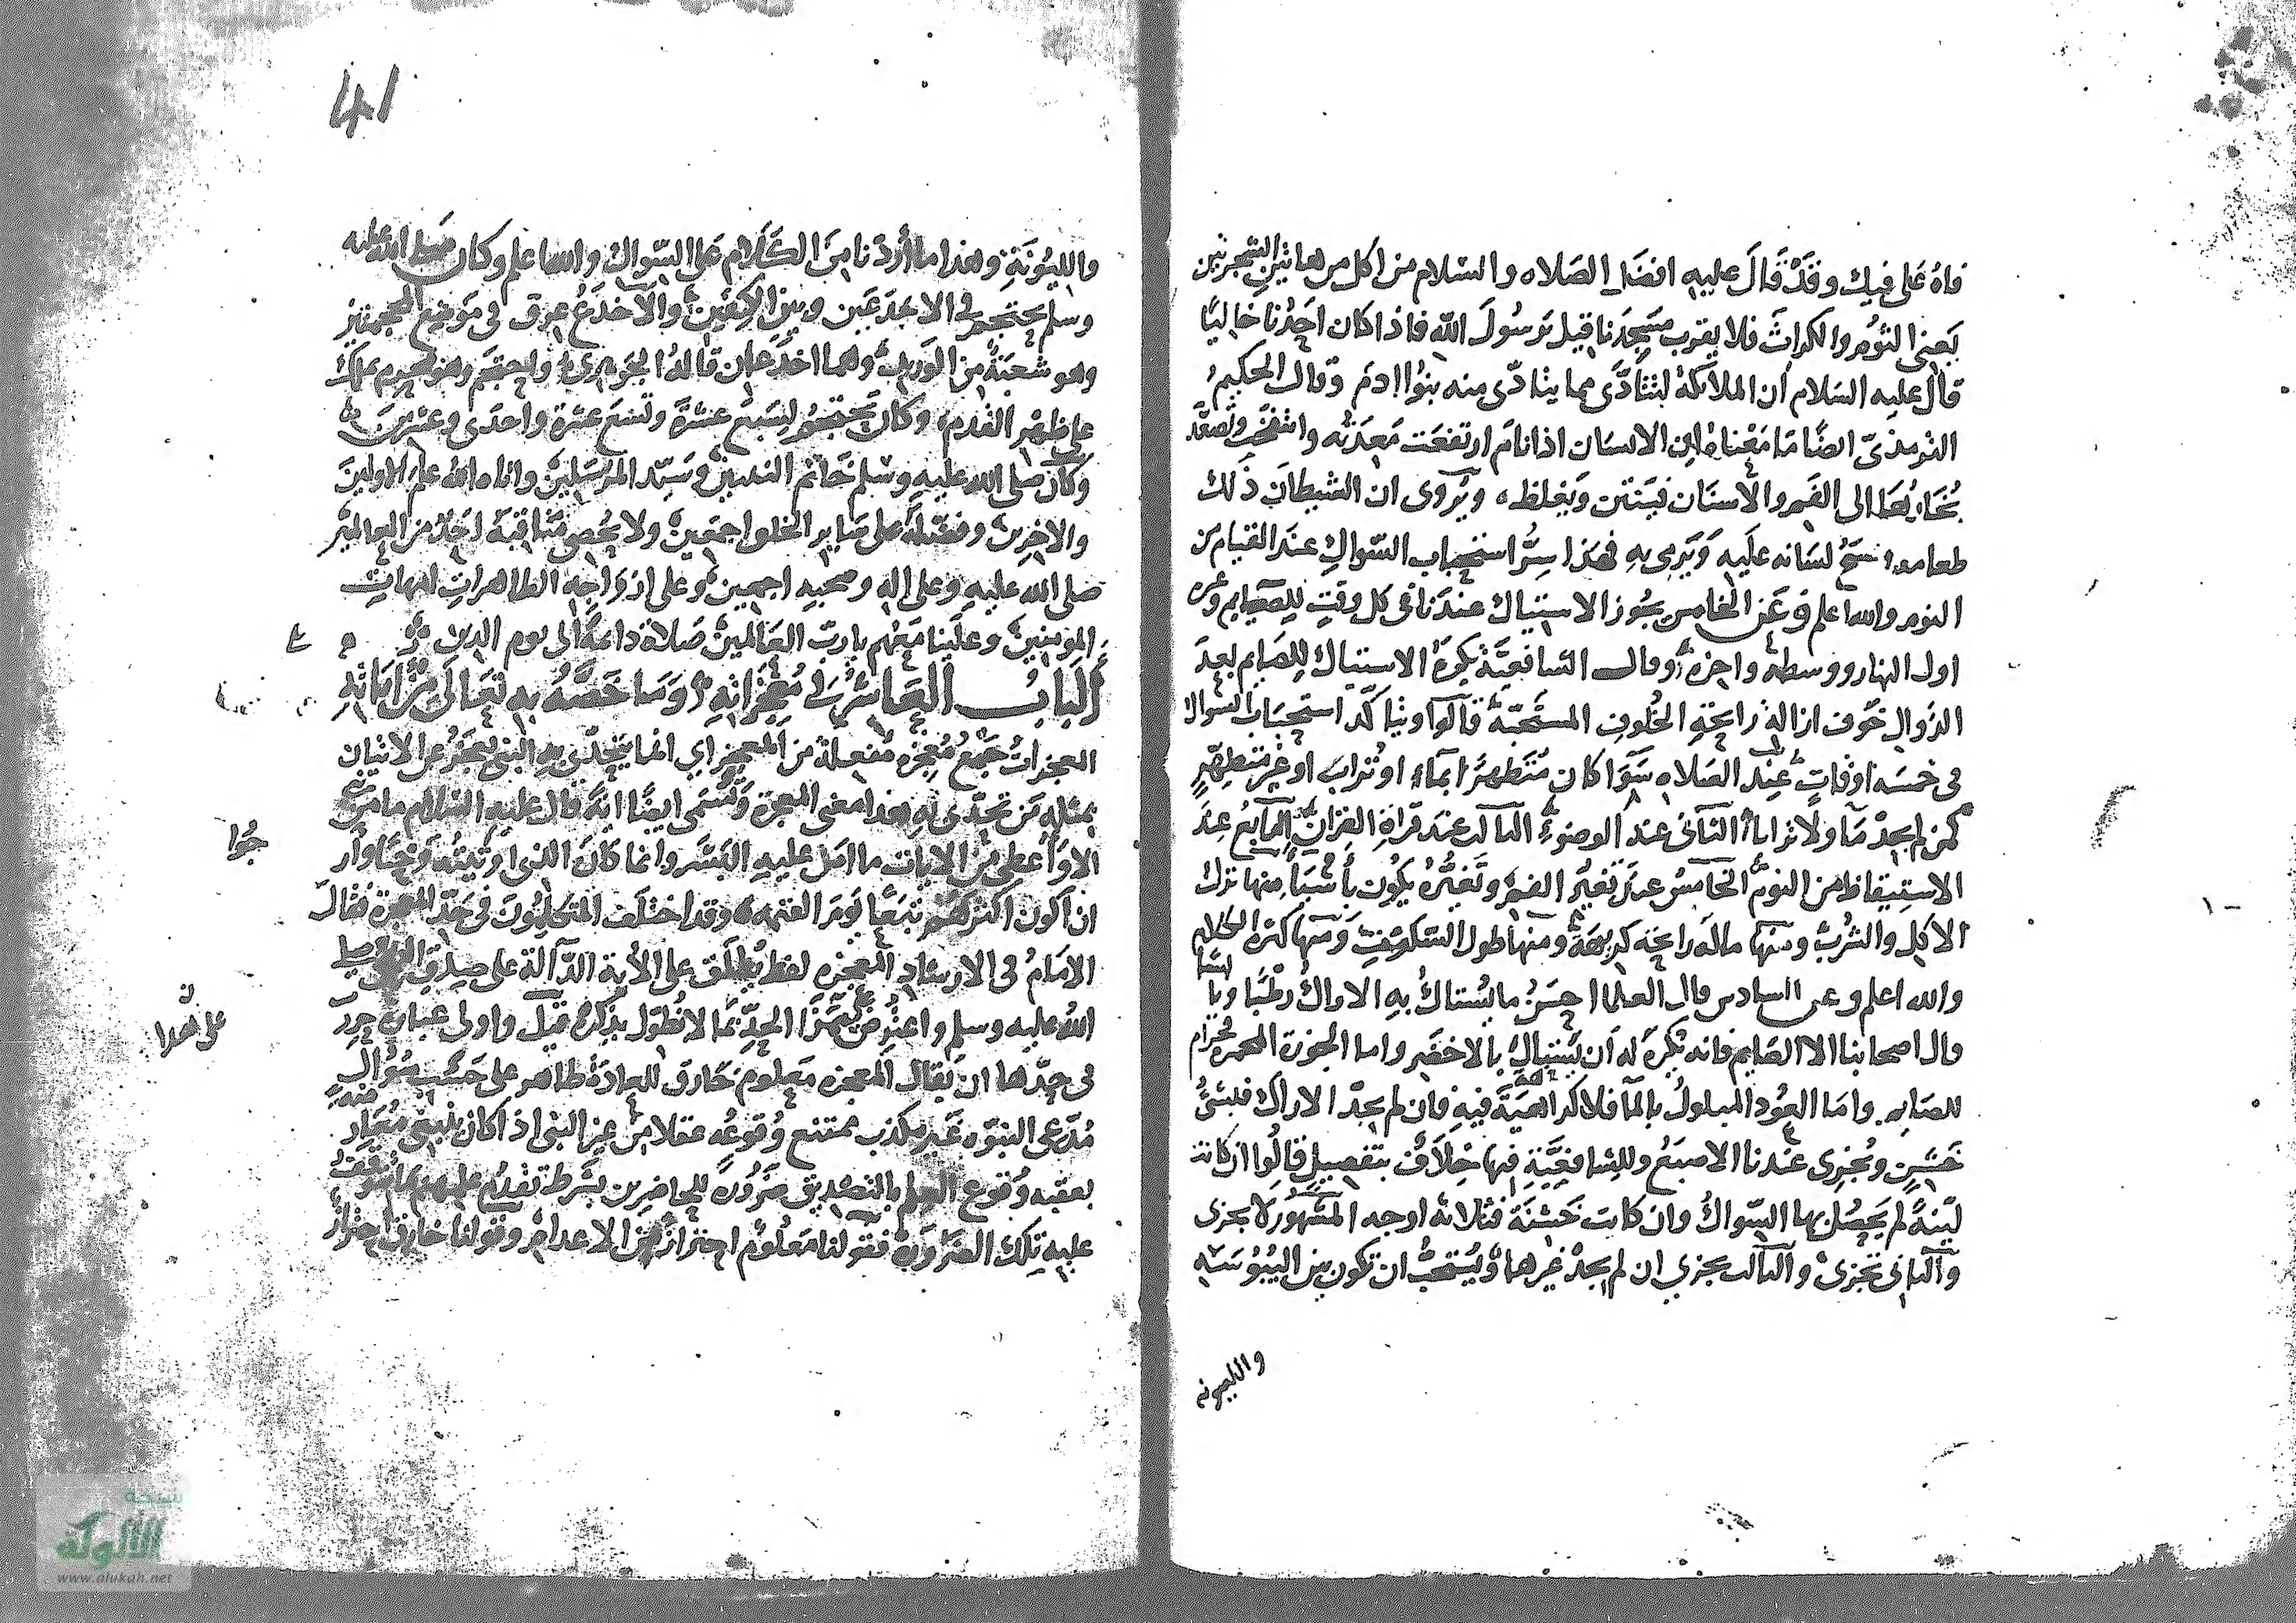 فاه على فيك وقد قال عليه افضل الصلاه والسلام من اكل من هاتين الشجرتين
يعني الثوم والكراث فلا يقرب مسجدنا قيل يرسول الله فاذا كان احدنا خاليًا
قال عليه السلام ان الملائكة لتتأذى مما يتاذى منه بنوا ادم وقال الحكيم
الترمذي ايضًا ما معناه ان الانسان اذا نام ارتفعت معدته وانتفخت وتصعد
بخارها الى الفم والاسنان فينتن ويغلظ ويروى ان الشيطان ذلك
طعامه لسانه عليه ويرمى به فهذا سر استحباب السواك عند القيام من
النوم والله اعلم وعن الخامس يجوز الاستياك عندنا في كل وقت للصايم وغيره
اول النهار ووسطه واخره وقال الشافعية يكره الاستياك للصايم بعد
الزوال خوف ازالة رايحة الخلوف المستحبة قالوا ويتاكد استحباب السواك
في خمسه اوقات عند الصلاه سوا كان متطهرًا بماء او تراب او غير متطهر
كمن لم يجد ما ولا ترابا الثاني عند الوضوء الثالث عند قراة القران الرابع عند
الاستيقاظ من النوم الخامس عند تغير الفم وتغيره يكون باشيا منها ترك
الاكل والشرب ومنها ماله رايحة كريهة ومنها طول السكوت ومنها كثرة الكلام
والله اعلم وعن السادس قال العلما احسن ما يستاك به الاراك رطبًا ويابسًا
قال اصحابنا الا الصايم فانه يكره له ان يستاك بالاخضر واما الجوزة المحمره فحرام
للصايم واما العود المبلول بالما فلا كراهية فيه فان لم يجد الاراك فبشئ
خشن ويجزى عندنا الاصبع وللشافعية فيها خلاف بتفصيل قالوا ان كانت
لينة لم يحصل بها السواك وان كانت خشنة فثلاثة اوجه المشهور لا يجزى
والثاني تجزى والثالث يجزي ان لم يجد غيرها ويستحب ان تكون بين اليبوسه
والليونه
والليونة وهذا ما أردنا من الكلام على السواك والله اعلم وكان صلى الله عليه
وسلم يحتجم في الاخدعين وبين الكتفين والاخدع عرق في موضع المحجمتين
وهو شعبة من الوريد وهما اخدعان قاله الجوهري واحتجم وهو محرم بملك
على ظهر القدم وكان يحتجم لسبع عشرة وتسع عشرة واحدى وعشرين
وكان صلى الله عليه وسلم خاتم النبيين وسيد المرسلين واتاه الله علم الاولين
والاخرين وفضله على ساير الخلق اجمعين ولا يحصى مناقبه احد من العالمين
صلى الله عليه وعلى اله وصحبه اجمعين وعلى ازواجه الطاهرات امهات
المومنين وعلينا معهم يا رب العالمين صلاة دائمة الى يوم الدين
الباب العاشر في معجزاته وما خصه به تعالى من اياته
المعجزات جمع معجزه مفعلة من العجز اي انما يتحدى به النبي يعجز عن الاتيان
بمثله من تحدى به هذا معنى المعجزة وتسمى ايضًا اية قال عليه السلام ما من نبي
الا واعطى من الايات ما امن عليه البشر وانما كان الذي اوتيته وحيًا وار
جوا
ان اكون اكثرهم تبعًا يوم القيمه وقد اختلف المتكلمون في حد المعجزة فقال
الامام في الارشاد المعجزه لفظ يطلق على الاية الدالة على صدق النبي صلى
الله عليه وسلم واعترض على هذا الحد بما لا نطول بذكره قيل واولى عبارة حرر
في حدها ان يقال المعجزه معلوم خارق للعادة ظاهر على حسب سوال
مدعى النبوه غير مكذب ممتنع وقوعه عقلا من غير النبي اذا كان
بعقبه وقوع العلم بالتصديق ضرورة للحاضرين بشرط تقدم علمهم بما تتوقف
عليه تلك الضرورة فقولنا معلوم احترازًا من الاعدام وقولنا خارق احتراز